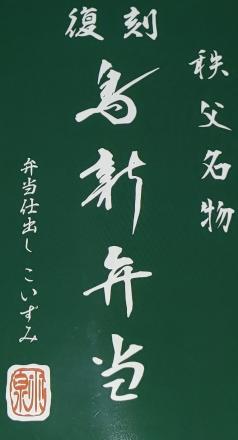 復刻
秩父名物
鳥新弁当
弁当仕出し こいずみ